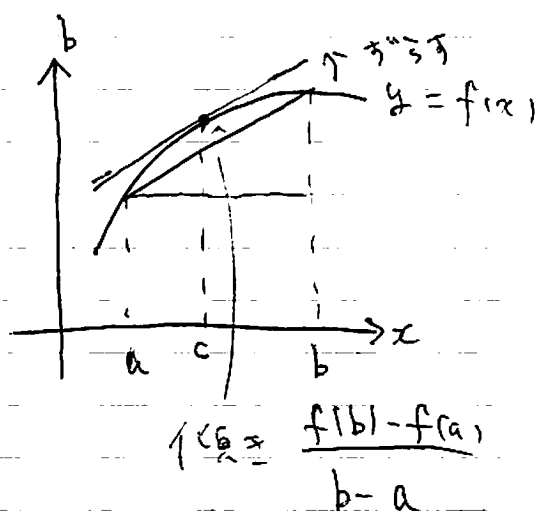 b
↑ ずらす
y = f(x)
a c b x
傾き f(b)-f(a)
b-a